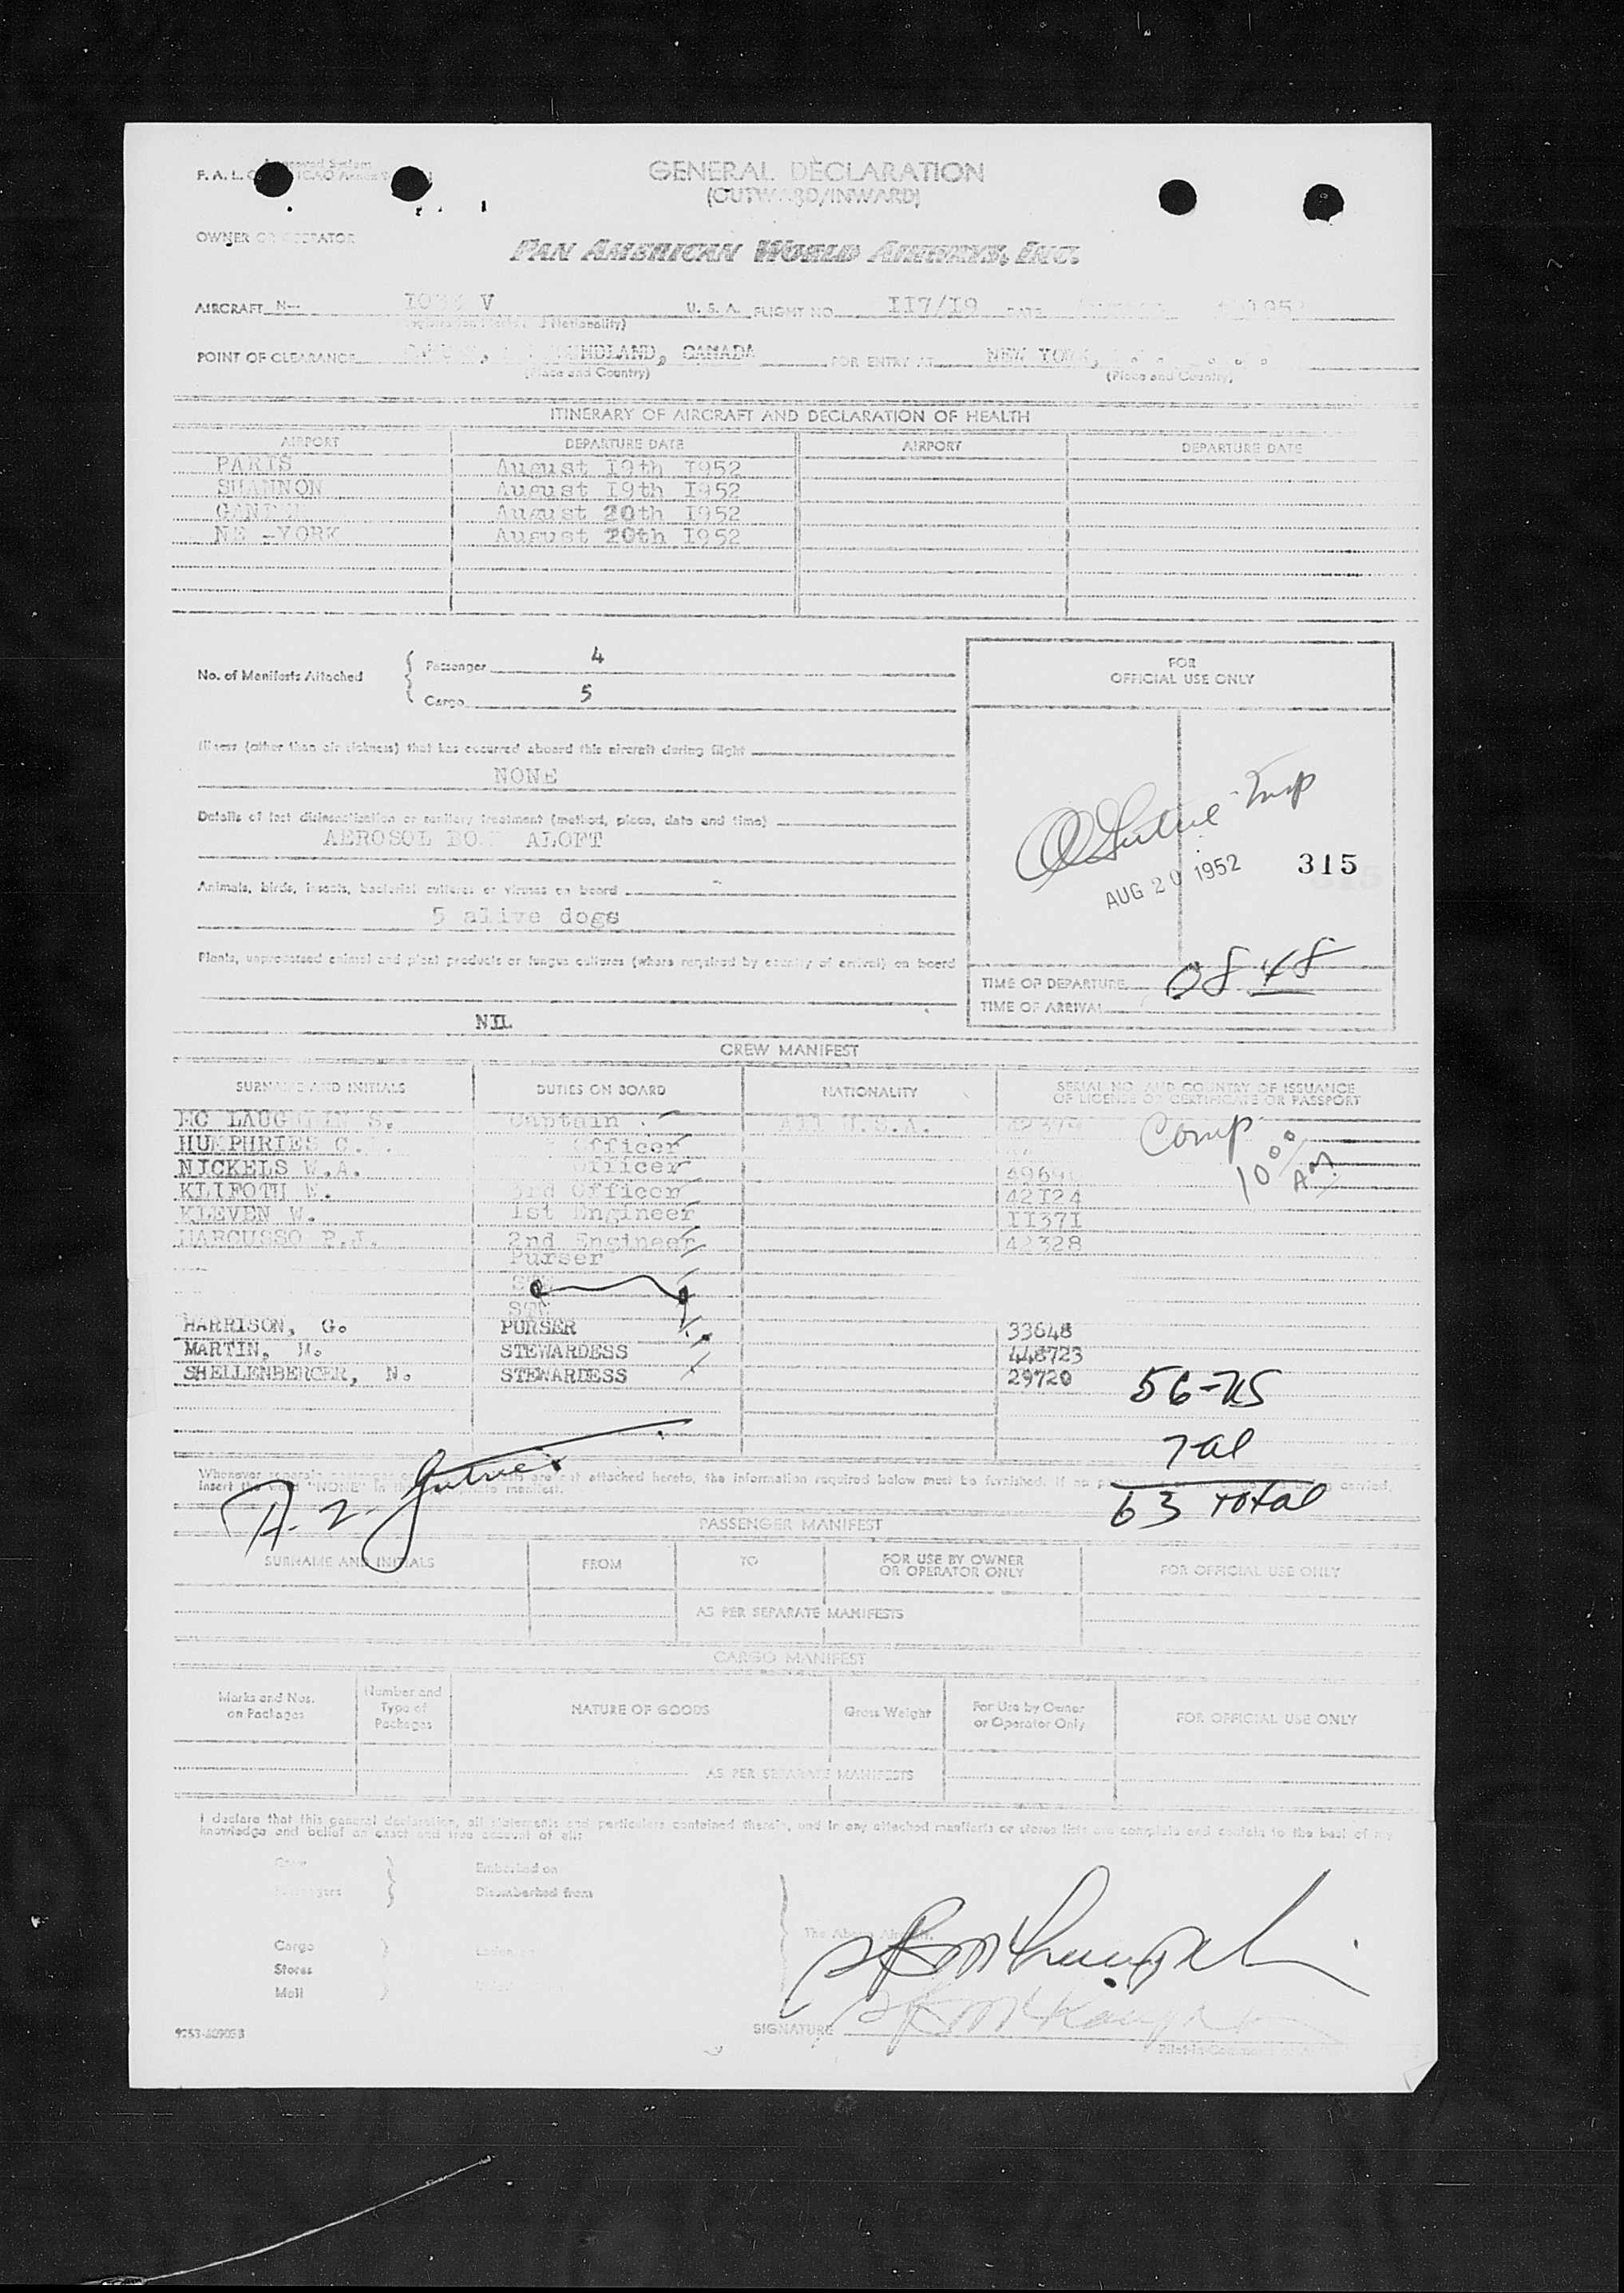 F. A. L.
GENERAL DECLARATION
(OUTWARD/INWARD)
OWNER OR OPERATOR
PAN AMERICAN WORLD AIRWAYS, INC.
AIRCRAFT N— V U. S. A. FLIGHT NO. II7/I9 DATE
(Registration Marks and Nationality)
POINT OF CLEARANCE CANADA FOR ENTRY AT NEW YORK,
(Place and Country) (Place and Country)
ITINERARY OF AIRCRAFT AND DECLARATION OF HEALTH
AIRPORT DEPARTURE DATE AIRPORT DEPARTURE DATE
PARIS August I9th I952
SHANNON August I9th I952
GANDER August 20th I952
NE -YORK August 20th I952
No. of Manifests Attached
Passenger 4
Cargo 5
FOR
OFFICIAL USE ONLY
Illness (other than air sickness) that has occurred aboard this aircraft during flight
NONE
Details of last disinsectization or sanitary treatment (method, place, date and time)
AEROSOL ALOFT
Insp
AUG 20 1952
315
Animals, birds, insects, bacterial cultures or viruses on board -
5 alive dogs
Plants, unprocessed animal and plant products or fungus cultures (where required by country of arrival) on board
TIME OF DEPARTURE 0848
TIME OF ARRIVAL
NIL
CREW MANIFEST
SURNAME AND INITIALS DUTIES ON BOARD NATIONALITY SERIAL NO. AND COUNTRY OF ISSUANCE
OF LICENSE OR CERTIFICATE OR PASSPORT
MC LAUGHLIN S. Captain All U.S.A. Comp
HUMPHRIES C. Officer 10 00/AM
NICKELS W.A. Officer
KLIFOTH W. 3rd Officer 42I24
KLEVEN W. 1st Engineer II37I
MARCUSSO P.J. 2nd Engineer 42328
Purser
HARRISON, G. PURSER 33648
MARTIN, M. STEWARDESS 448723
SHELLENBERGER, N. STEWARDESS 29720
56-US
7 al
63 Total
Whenever are not attached hereto, the information required below must be furnished. If no carried,
insert the word "NONE" in the manifest.
PASSENGER MANIFEST
SURNAME AND INITIALS FROM TO FOR USE BY OWNER
OR OPERATOR ONLY FOR OFFICIAL USE ONLY
AS PER SEPARATE MANIFESTS
CARGO MANIFEST
Marks and Nos.
on Packages Number and
Type of
Packages NATURE OF GOODS Gross Weight For Use by Owner
or Operator Only FOR OFFICIAL USE ONLY
AS PER SEPARATE MANIFESTS
I declare that this general declaration, all statements and particulars contained therein, and in any attached manifests or stores lists are complete and contain to the best of my
knowledge and belief an exact and true account of all:
Crew
Passengers
Embarked on
Disembarked from
The Above Aircraft.
Cargo
Stores
Mail
SIGNATURE